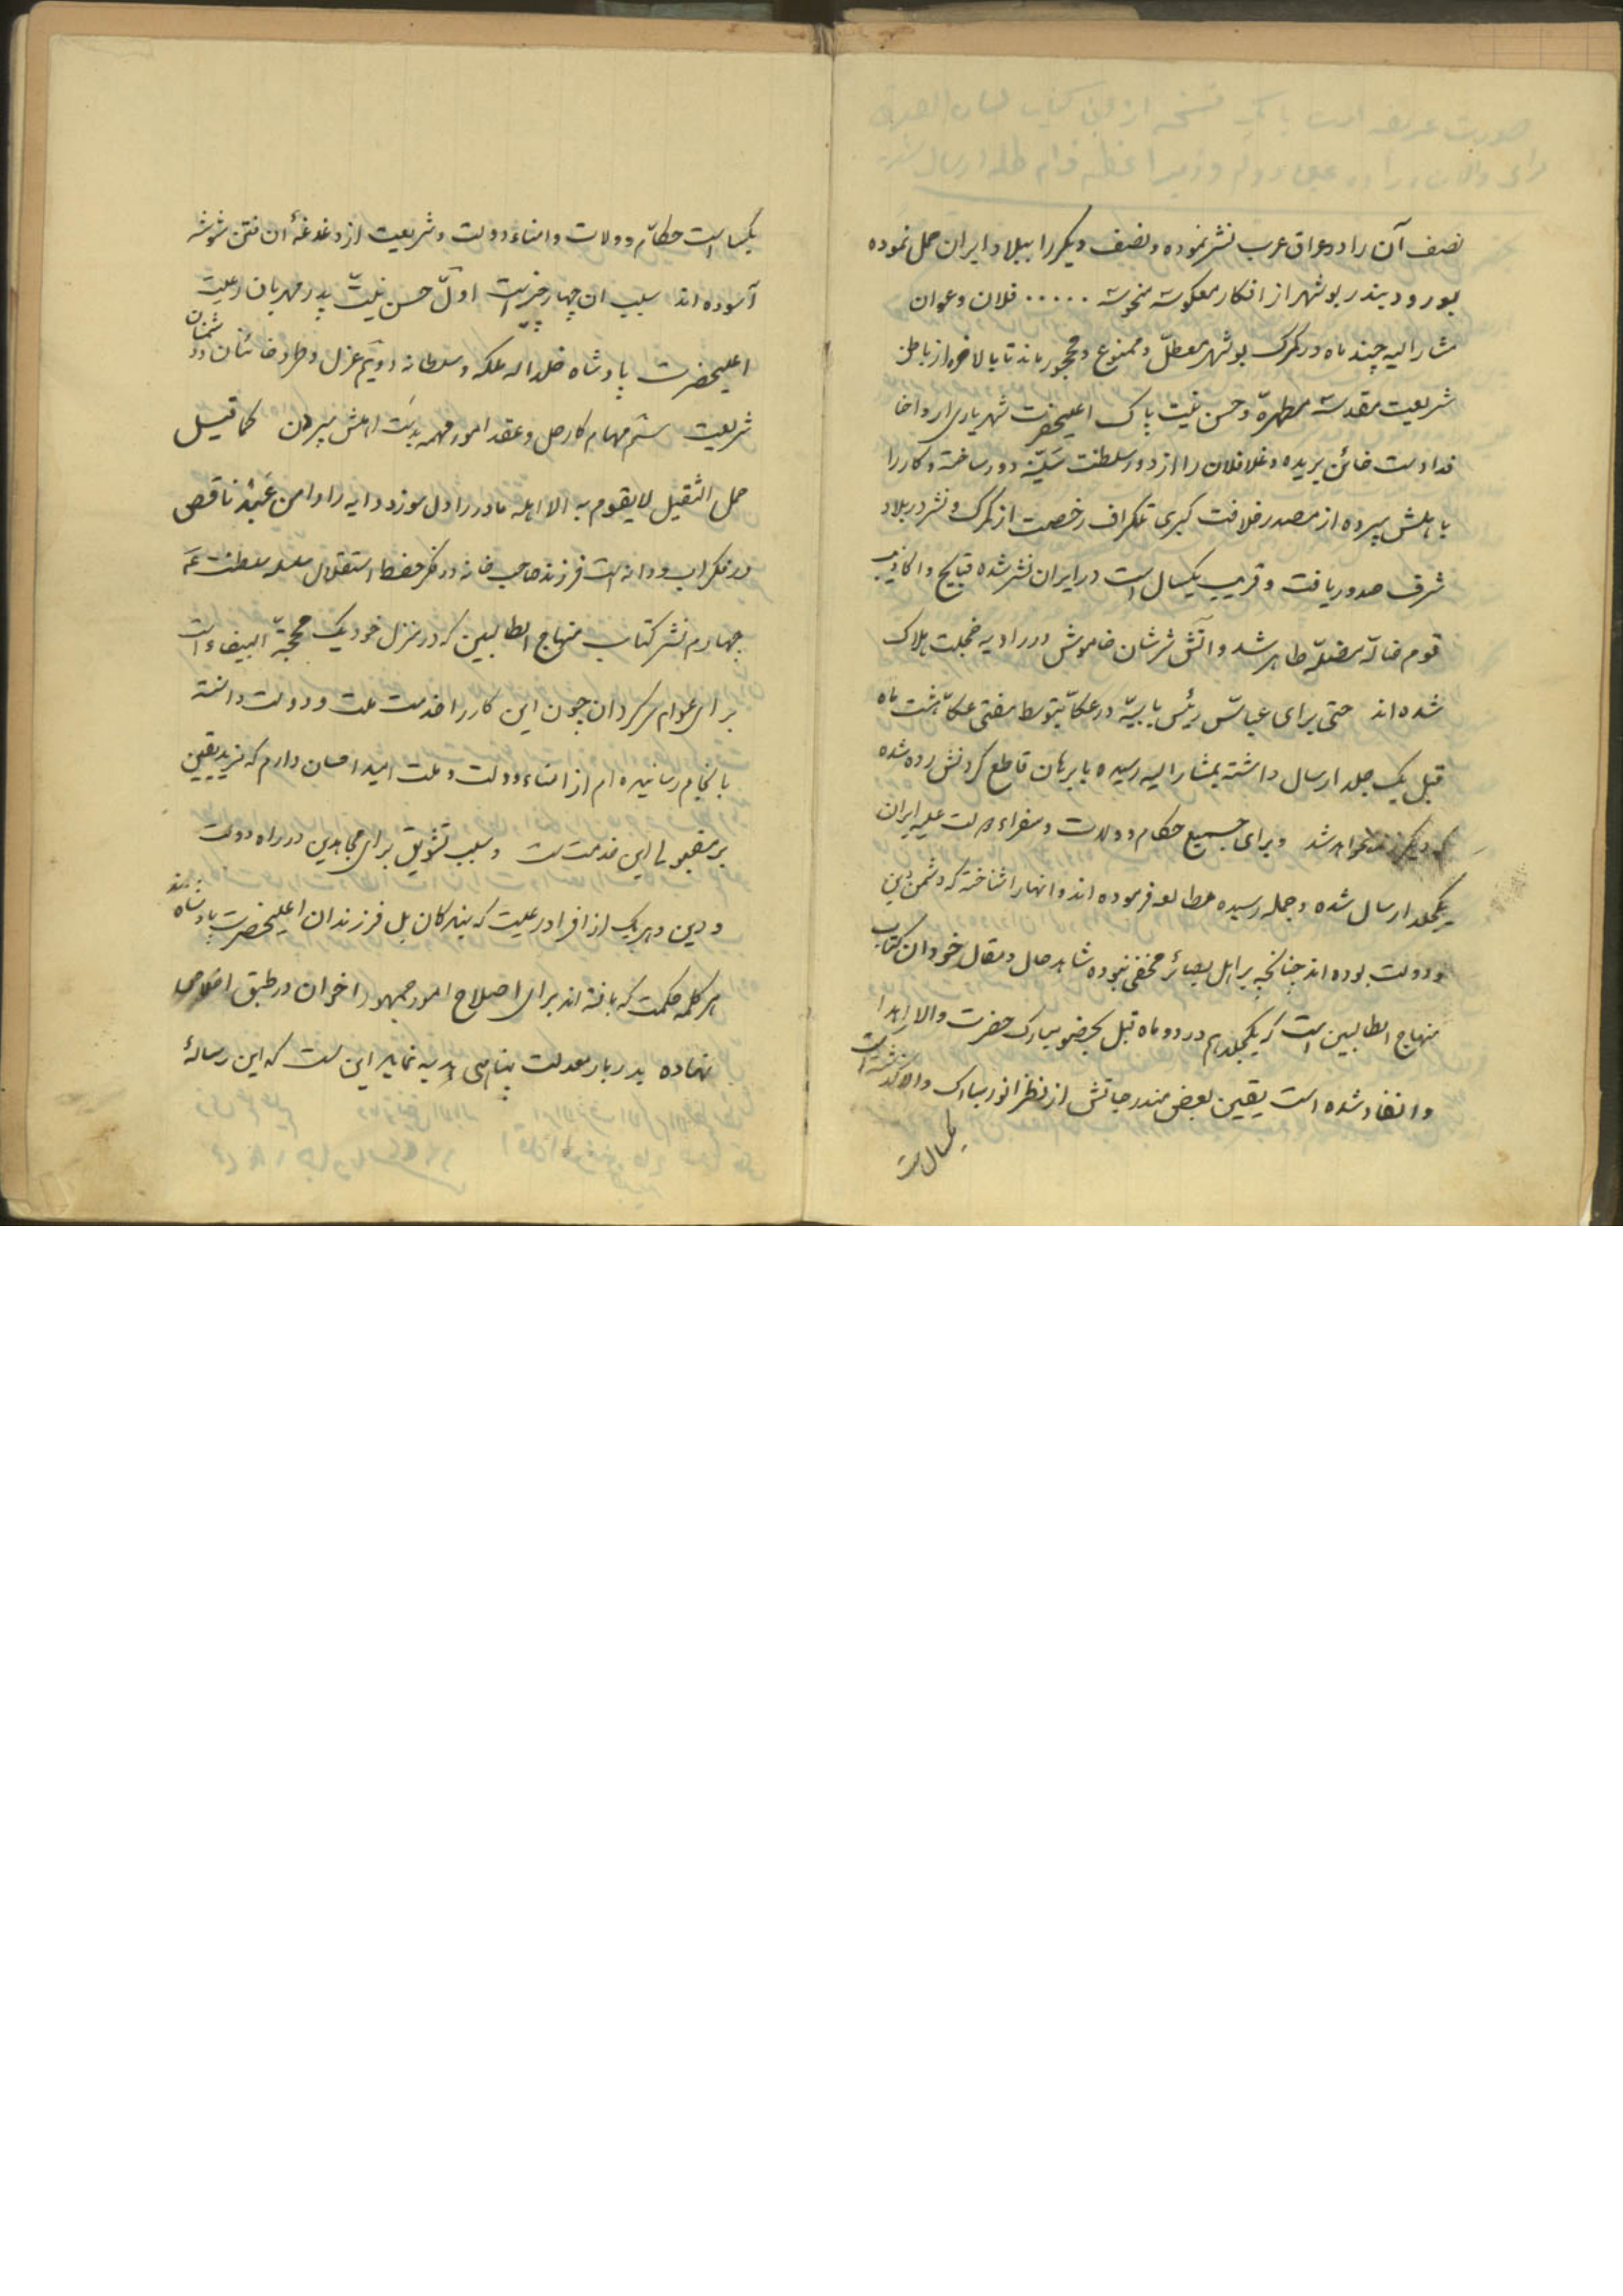 صورت عریضه است با یک نسخه از کتاب لسان الصدق
برای والان
نصف آن را در عراق عرب نشر نموده و نصف دیگر را ببلاد ایران حمل نموده
بورود بندر بوشهر از افکار معکوسه منحوسه ..... فلان و عوان
مشار الیه چند ماه در گمرک بوشهر معطّل و ممنوع و محجور ماند تا بالاخره از باطن
شریعت مقدسه مطهره و حسن نیت پاک اعلیحضرت شهریاری ارواحنا
فداه دست خائن بریده و غلافلان را از دور سلطنت سَنیّه دور ساخته و کار را
باهلش سپرده از مصدر خلافت کبری تلگراف رخصت از گمرک و نشر در بلاد
شرف صدور یافت و قریب یکسال است در ایران نشر شده قبایح و اکاذیب
قوم ضاله مضلّه ظاهر شد و آتش شرشان خاموش در زاویه خجلت هلاک
شده اند حتی برای عباس رئیس بابیه در عکا بتوسط مفتی عکا هشت ماه
قبل یک جلد ارسال داشته بمشار الیه رسیده با برهان قاطع گردنش زده شده
که دیگر زنده نخواهد شد و برای جمیع حکام و ولات و سفراء دولت علیه ایران
یکجلد ارسال شده و جمله رسیده مطالعه فرموده اند و انها را شناخته که دشمن دین
و دولت بوده اند چنانچه بر اهل بصائر مخفی نبوده شاهد حال و مقال خود ان کتاب
منهاج الطالبین است که یکجلد هم در دو ماه قبل بحضور مبارک حضرت والا اهدا
و انفاذ شده است یقین بعض مندرجاتش از نظر انور مبارک والا گذشته است
یکسال است
یکسال است حکام و ولات و امناء دولت و شریعت از دغدغهٔ ان فتن شوشه
آسوده اند سبب ان چهار چیز است اول حسن نیت پدر مهربان رعیت
اعلیحضرت پادشاه خلد الله ملکه و سلطانه دویم عزل و طرد خائنان و دشمنان
شریعت سیّم مهام کار حل و عقد امور مهمه بدست اهلش سپردن کما قیل
حمل الثقیل لا یقوم به الا اهله مادر را دل سوزد دایه را دامن عبید ناقص
در فکر اب و دانه است فرزند صاحب خانه در فکر حفظ استقلال سلطنت
چهارم نشر کتاب منهاج الطالبین که در منزل خود یک محجّة البیضاء است
برای عوام سرگردان چون این کار را خدمت ملت و دولت دانسته
بانجام رسانیده ام از امناء دولت و ملت امید احسان دارم که مزید یقین
بر مقبولی این خدمت است و سبب تشویق برای مجاهدین در راه دولت
و دین و هر یک از افراد رعیت که بندگان بل فرزندان اعلیحضرت پادشاه
هر کلمه حکمت که یافته اند برای اصلاح امور جمهور اخوان در طبق
نهاده بدربار معدلت پناهی هدیه نماید این است که این رسالهٔ